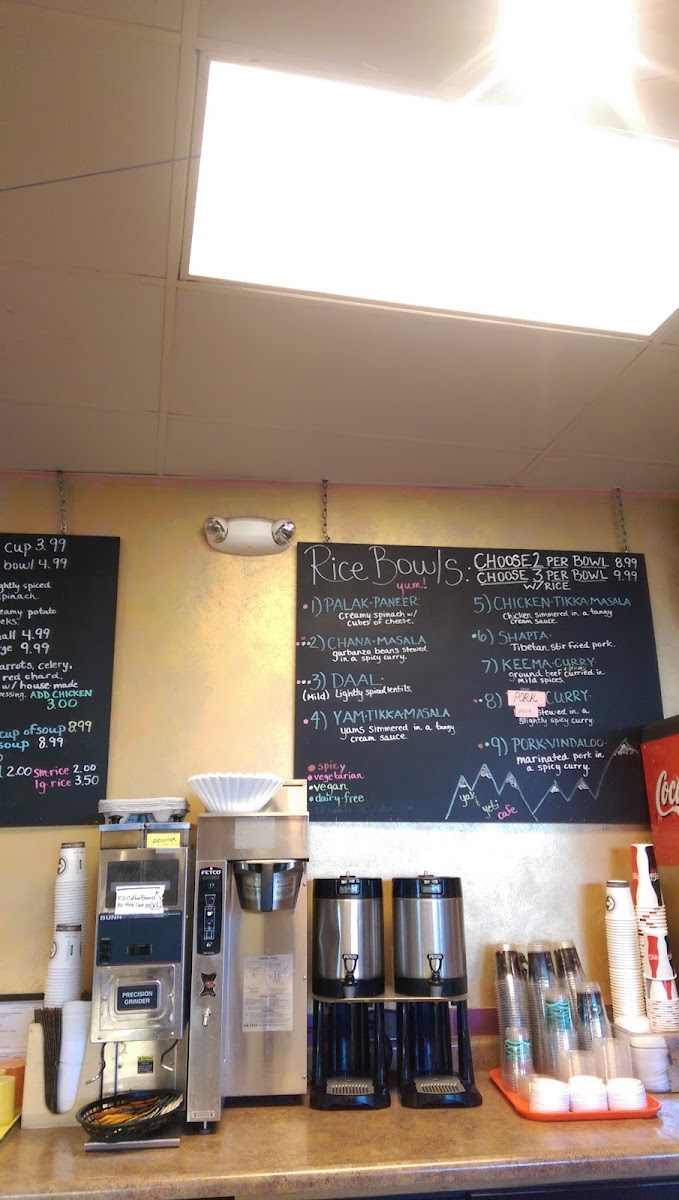 cup 3.99
bowl 4.99
spiced
spinach.
potato
4.99
9.99
celery,
red chard,
w/ house-made
ADD CHICKEN
3.00
cup of soup 8.99
soup 8.99
2.00 sm. rice 2.00
lg. rice 3.50
Rice Bowls:
yum!
CHOOSE 2 PER BOWL 8.99
CHOOSE 3 PER BOWL 9.99
W/ RICE
1) PALAK·PANEER·
Creamy spinach w/
cubes of cheese.
2) CHANA·MASALA
garbanzo beans stewed
in a spicy curry.
3) DAAL·
(Mild) Lightly spiced lentils.
4) YAM·TIKKA·MASALA
yams simmered in a tangy
cream sauce.
5) CHICKEN·TIKKA·MASALA
chicken simmered in a tangy
cream sauce.
6) SHAPTA·
Tibetan stir fried pork.
7) KEEMA·CURRY·
ground beef curried in
mild spices.
8) PORK CURRY·
stewed in a
slightly spicy curry.
9) PORK·VINDALOO·
marinated pork in
a spicy curry.
spicy
vegetarian
vegan
dairy-free
yak & yeti
cafe
Coca
REGULAR
BUNN
PRECISION
GRINDER
FETCO
FETCO